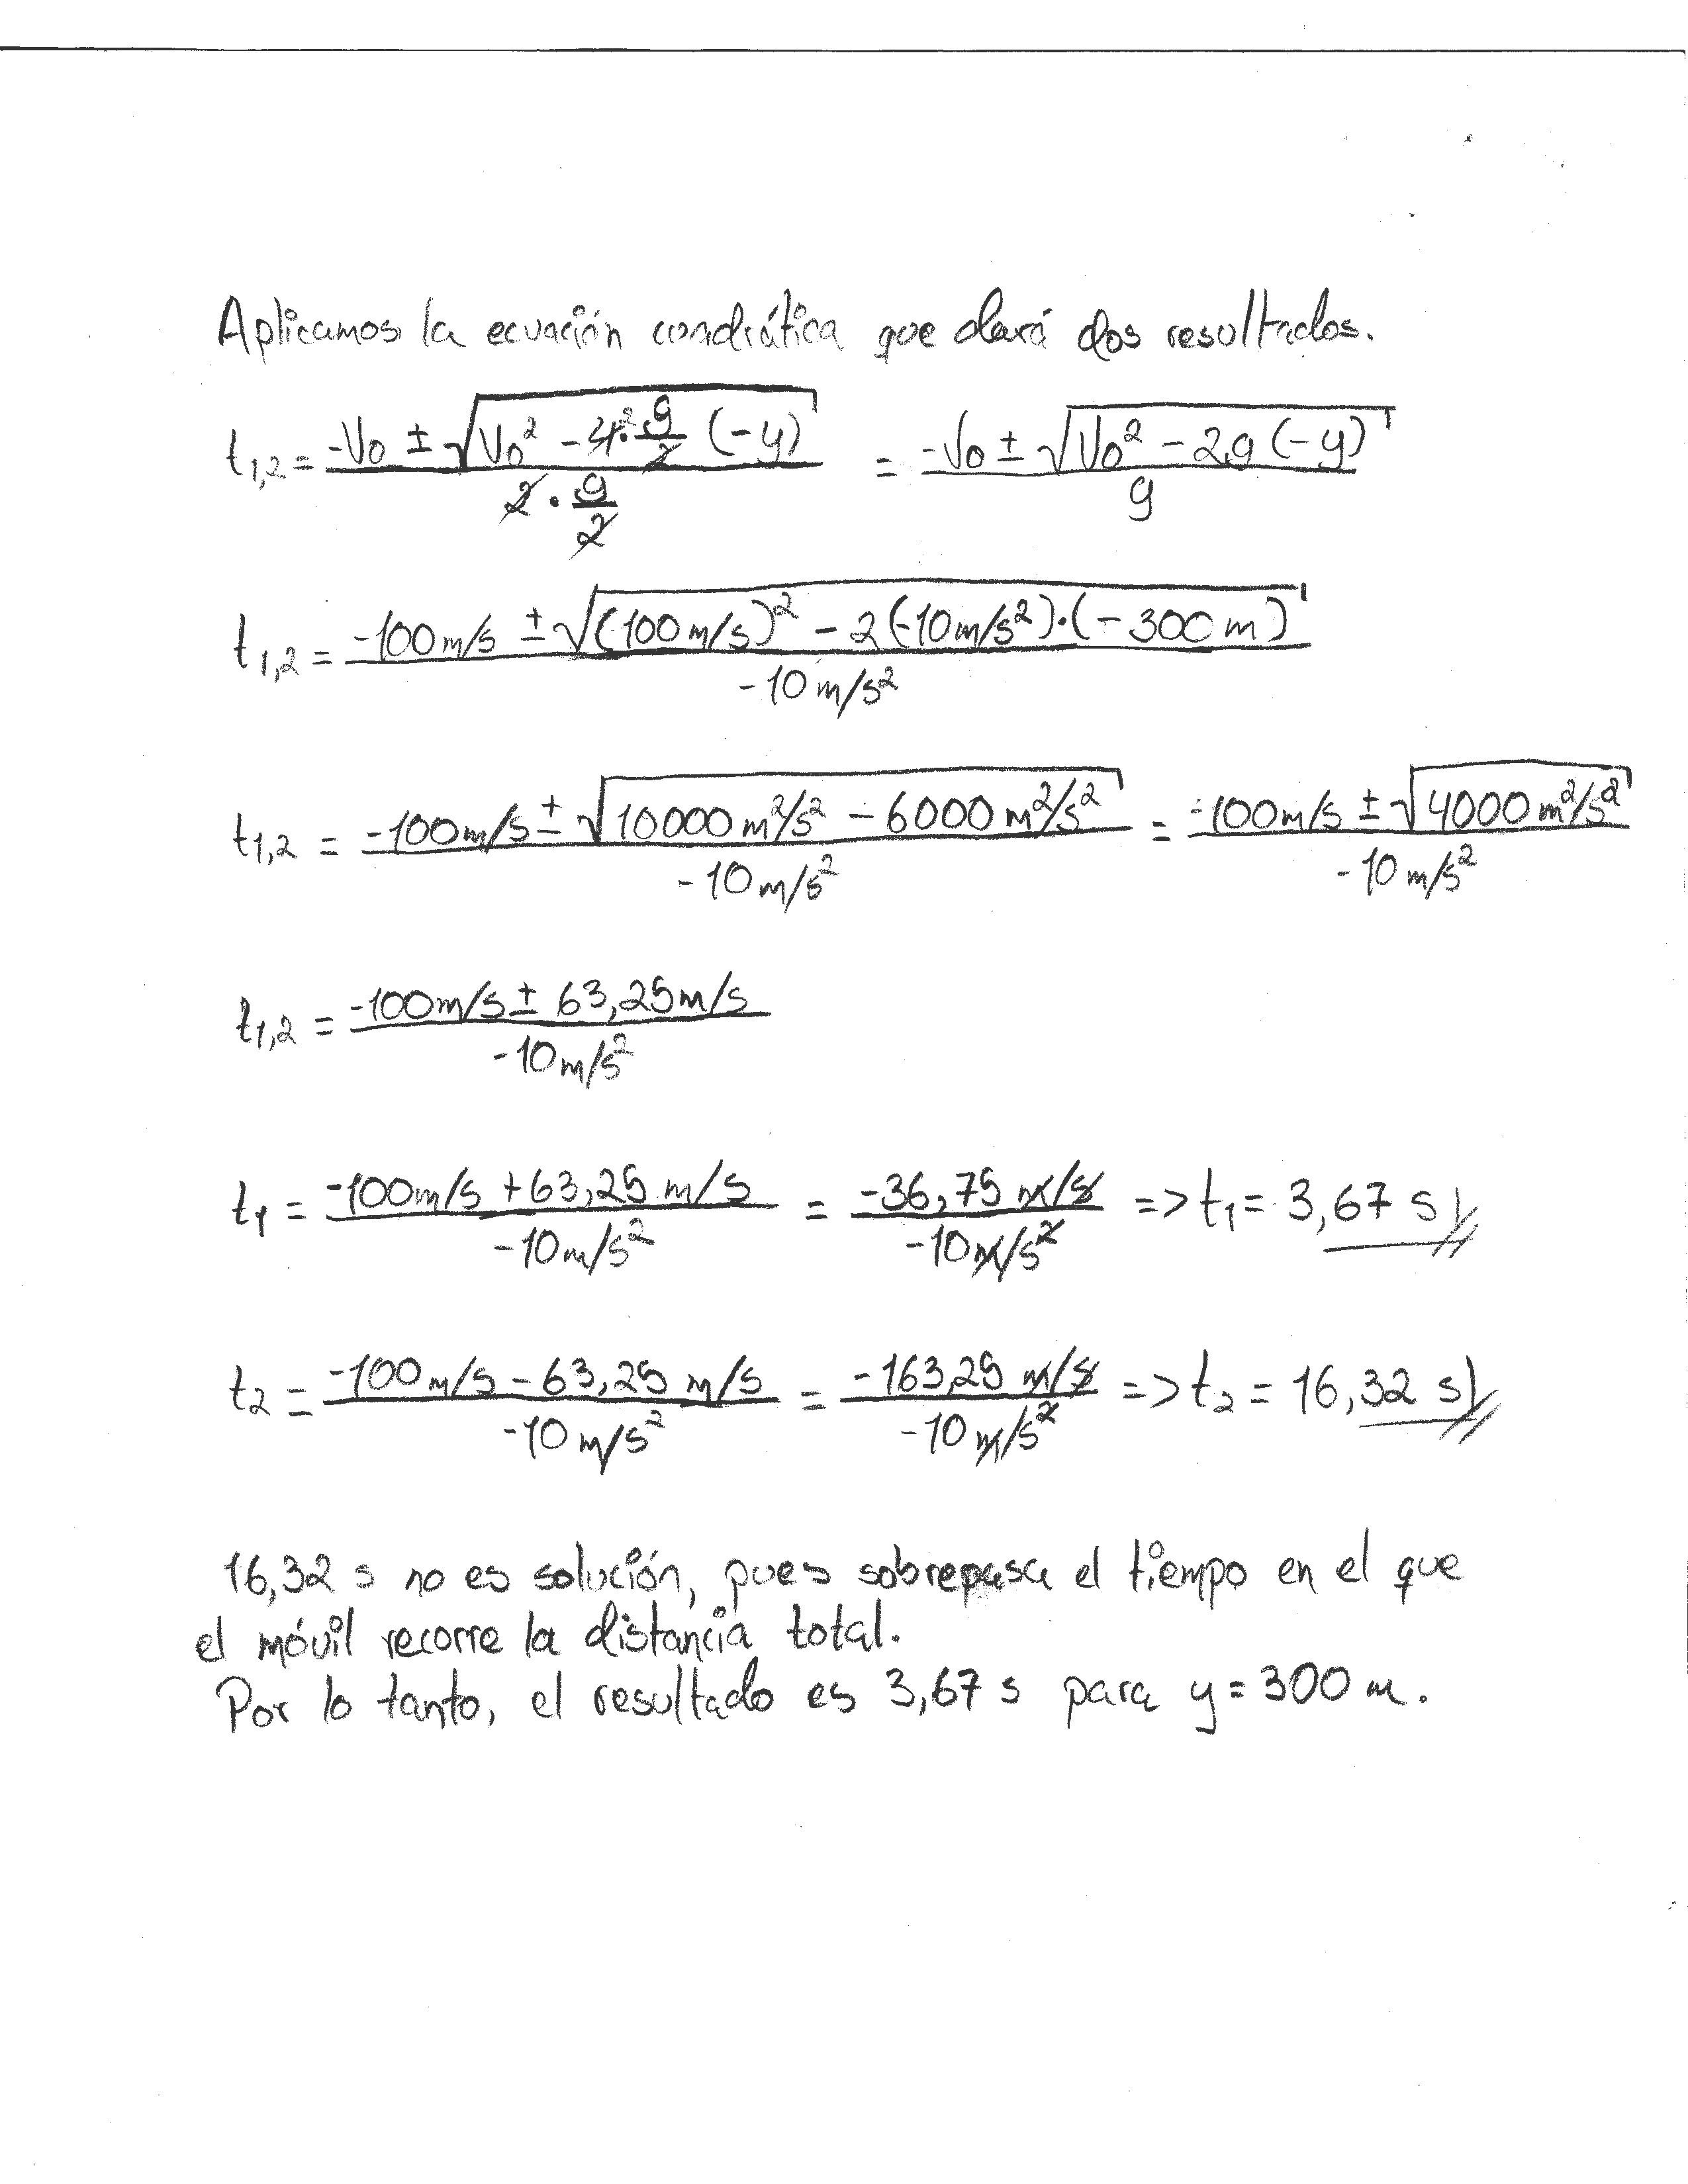 Aplicamos la ecuación cuadrática que dará dos resultados.
t1,2 = (-V0 ± √(V0² - 4·² g/2 (-y))) / (2 · g/2) = (-V0 ± √(V0² - 2g(-y))) / g
t1,2 = (-100 m/s ± √((100 m/s)² - 2(-10 m/s²)·(-300 m))) / (-10 m/s²)
t1,2 = (-100 m/s ± √(10000 m²/s² - 6000 m²/s²)) / (-10 m/s²) = (-100 m/s ± √(4000 m²/s²)) / (-10 m/s²)
t1,2 = (-100 m/s ± 63,25 m/s) / (-10 m/s²)
t1 = (-100 m/s + 63,25 m/s) / (-10 m/s²) = (-36,75 m/s) / (-10 m/s²) => t1 = 3,67 s
t2 = (-100 m/s - 63,25 m/s) / (-10 m/s²) = (-163,25 m/s) / (-10 m/s²) => t2 = 16,32 s
16,32 s no es solución, pues sobrepasa el tiempo en el que
el móvil recorre la distancia total.
Por lo tanto, el resultado es 3,67 s para y = 300 m.